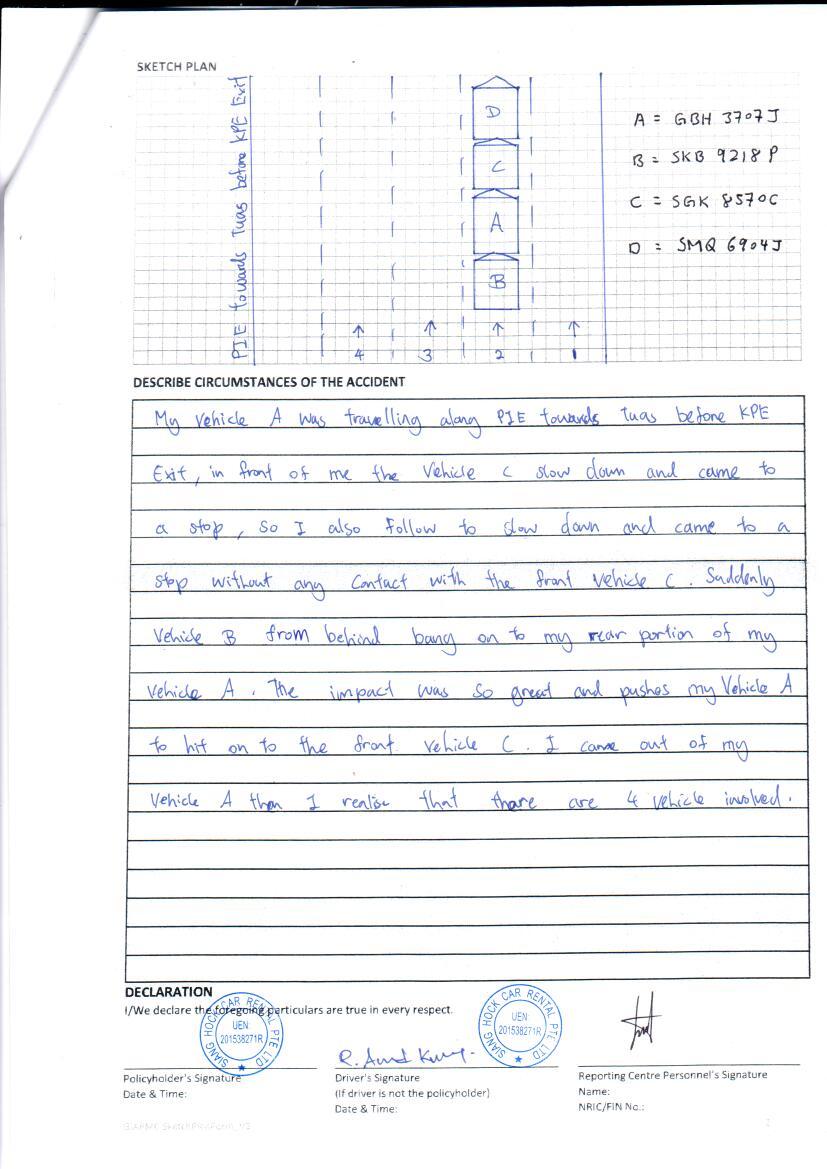 SKETCH PLAN
PIE towards Tuas before KPE Exit
D
C
A
B
4
3
2
1
A = GBH 3707J
B = SKB 9218P
C = SGK 8570C
D = SMQ 6904J
DESCRIBE CIRCUMSTANCES OF THE ACCIDENT
My vehicle A was travelling along PIE towards tuas before KPE
Exit, in front of me the vehicle C slow down and came to
a stop, so I also follow to slow down and came to a
stop without any contact with the front vehicle C. Suddenly
vehicle B from behind bang on to my rear portion of my
vehicle A. The impact was so great and pushes my Vehicle A
to hit on to the front vehicle C. I came out of my
vehicle A then I realise that there are 4 vehicle involved.
DECLARATION
I/We declare the foregoing particulars are true in every respect.
SIANG HOCK CAR RENTAL PTE LTD
UEN:
201538271R
SIANG HOCK CAR RENTAL PTE LTD
UEN:
201538271R
Policyholder's Signature
Date & Time:
Driver's Signature
(If driver is not the policyholder)
Date & Time:
Reporting Centre Personnel's Signature
Name:
NRIC/FIN No.:
2